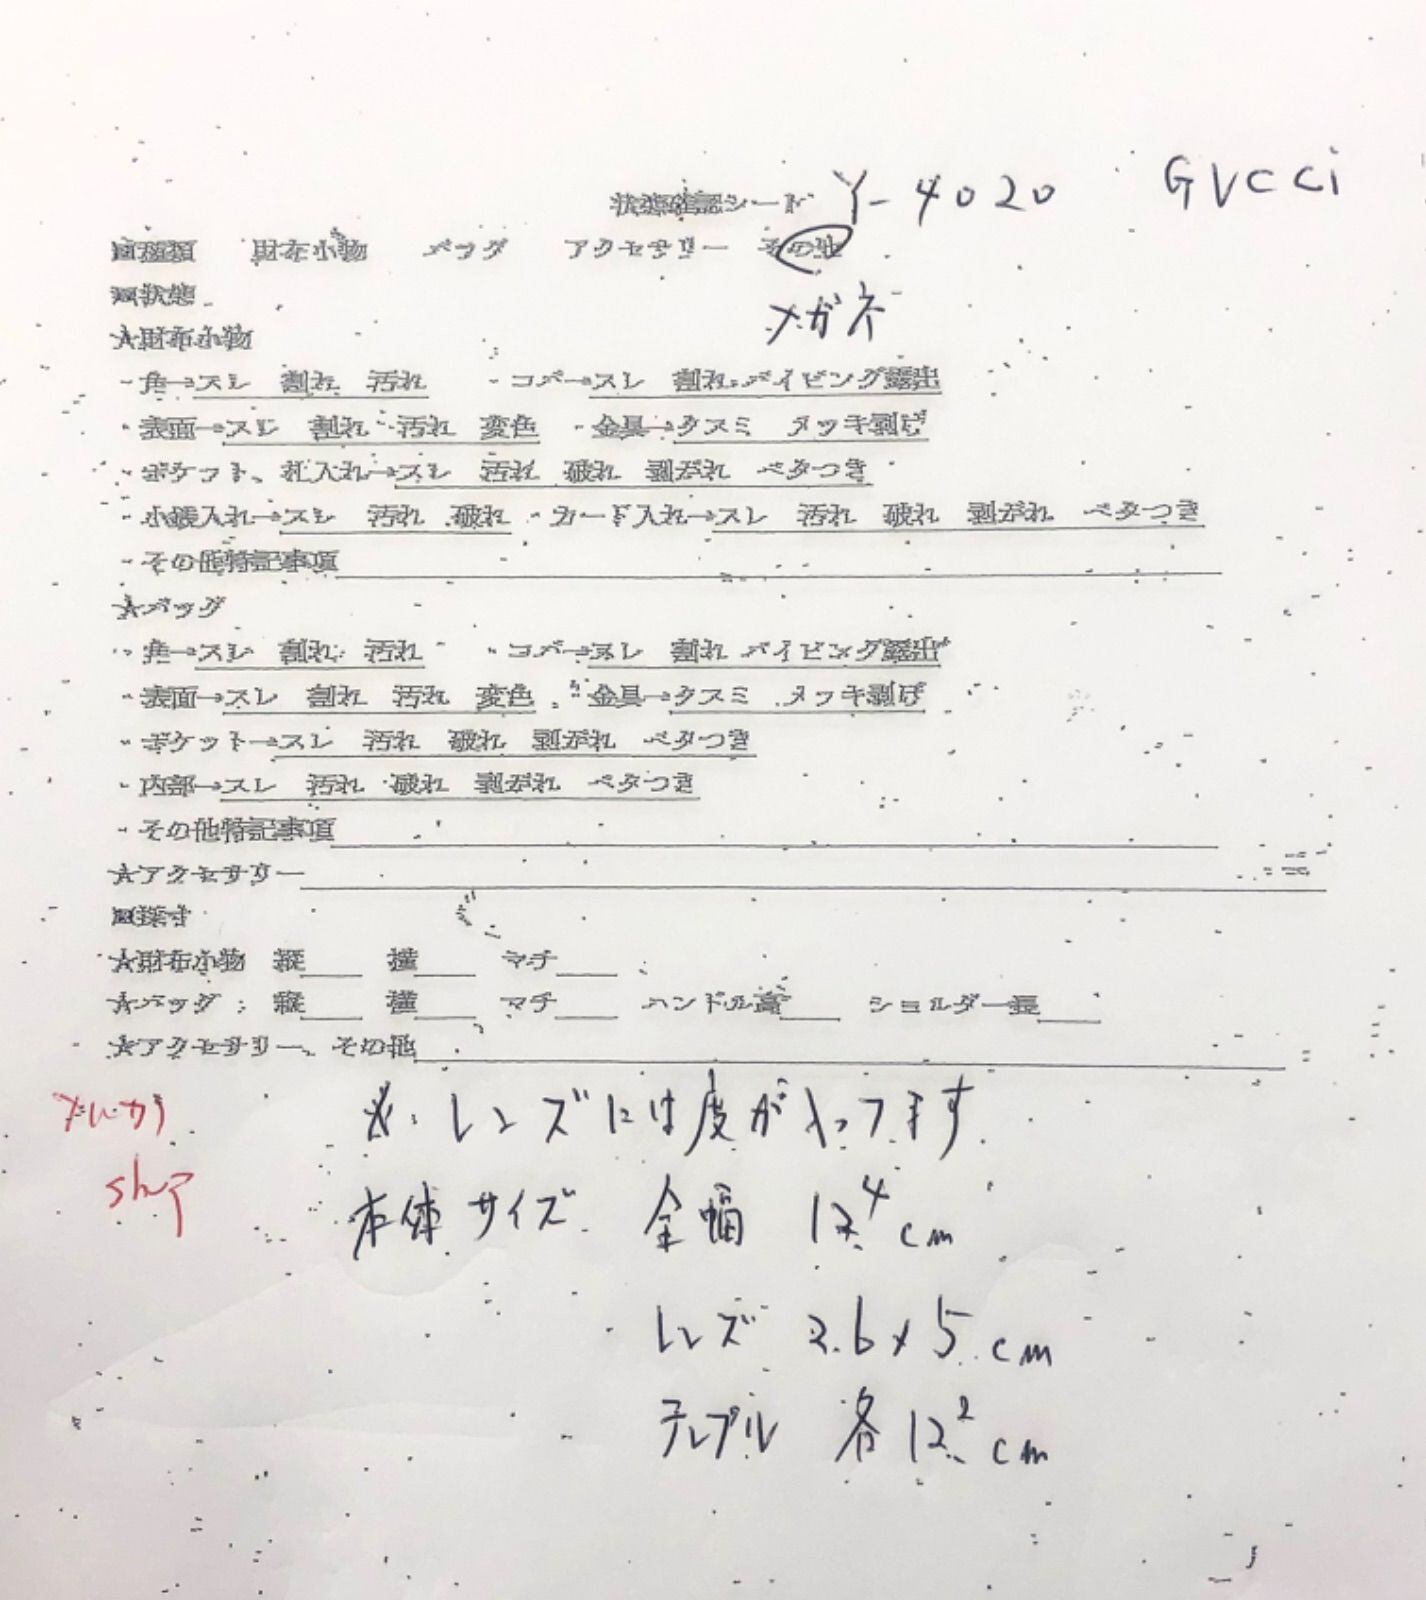 状態確認シート Y-4020 GUCCi
■種類 財布小物 バッグ アクセサリー その他
メガネ
■状態
★財布小物
・角→スレ 割れ 汚れ ・コバ→スレ 割れ パイピング露出
・表面→スレ 割れ 汚れ 変色 ・金具→クスミ メッキ剥げ
・ポケット、札入れ→スレ 汚れ 破れ 剥がれ ベタつき
・小銭入れ→スレ 汚れ 破れ ・カード入れ→スレ 汚れ 破れ 剥がれ ベタつき
・その他特記事項
★バッグ
・角→スレ 割れ 汚れ ・コバ→スレ 割れ パイピング露出
・表面→スレ 割れ 汚れ 変色 ・金具→クスミ メッキ剥げ
・ポケット→スレ 汚れ 破れ 剥がれ ベタつき
・内部→スレ 汚れ 破れ 剥がれ ベタつき
・その他特記事項
★アクセサリー
■採寸
★財布小物 縦 横 マチ
★バッグ 縦 横 マチ ハンドル高 ショルダー長
★アクセサリー、その他
メルカリ ※レンズには度が入ってます
shop 本体サイズ 全幅 12.4cm
レンズ 3.6×5cm
テンプル 各12.2cm